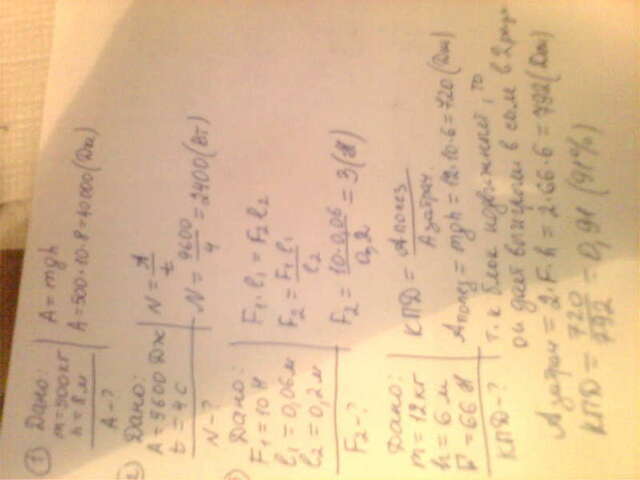 ① Дано:
m=500кг
h=8м
A-?
A=mgh
A=500·10·8=40000(Дж)
2 Дано:
A=9600Дж
t=4с
N-?
N=A/t
N=9600/4=2400(Вт)
Дано:
F1=10Н
l1=0,06м
l2=0,2м
F2-?
F1·l1=F2l2
F2=F1l1/l2
F2=10·0,06/0,2=3(Н)
Дано:
m=12кг
h=6м
F=66Н
КПД-?
КПД=Aполез/Aзатрач.
Aполез=mgh=12·10·6=720(Дж)
т.к блок подвижней, то
он дает выигрыш в силе в 2 раза
Aзатрач=2·F·h=2·66·6=792(Дж)
КПД=720/792=0,91(91%)